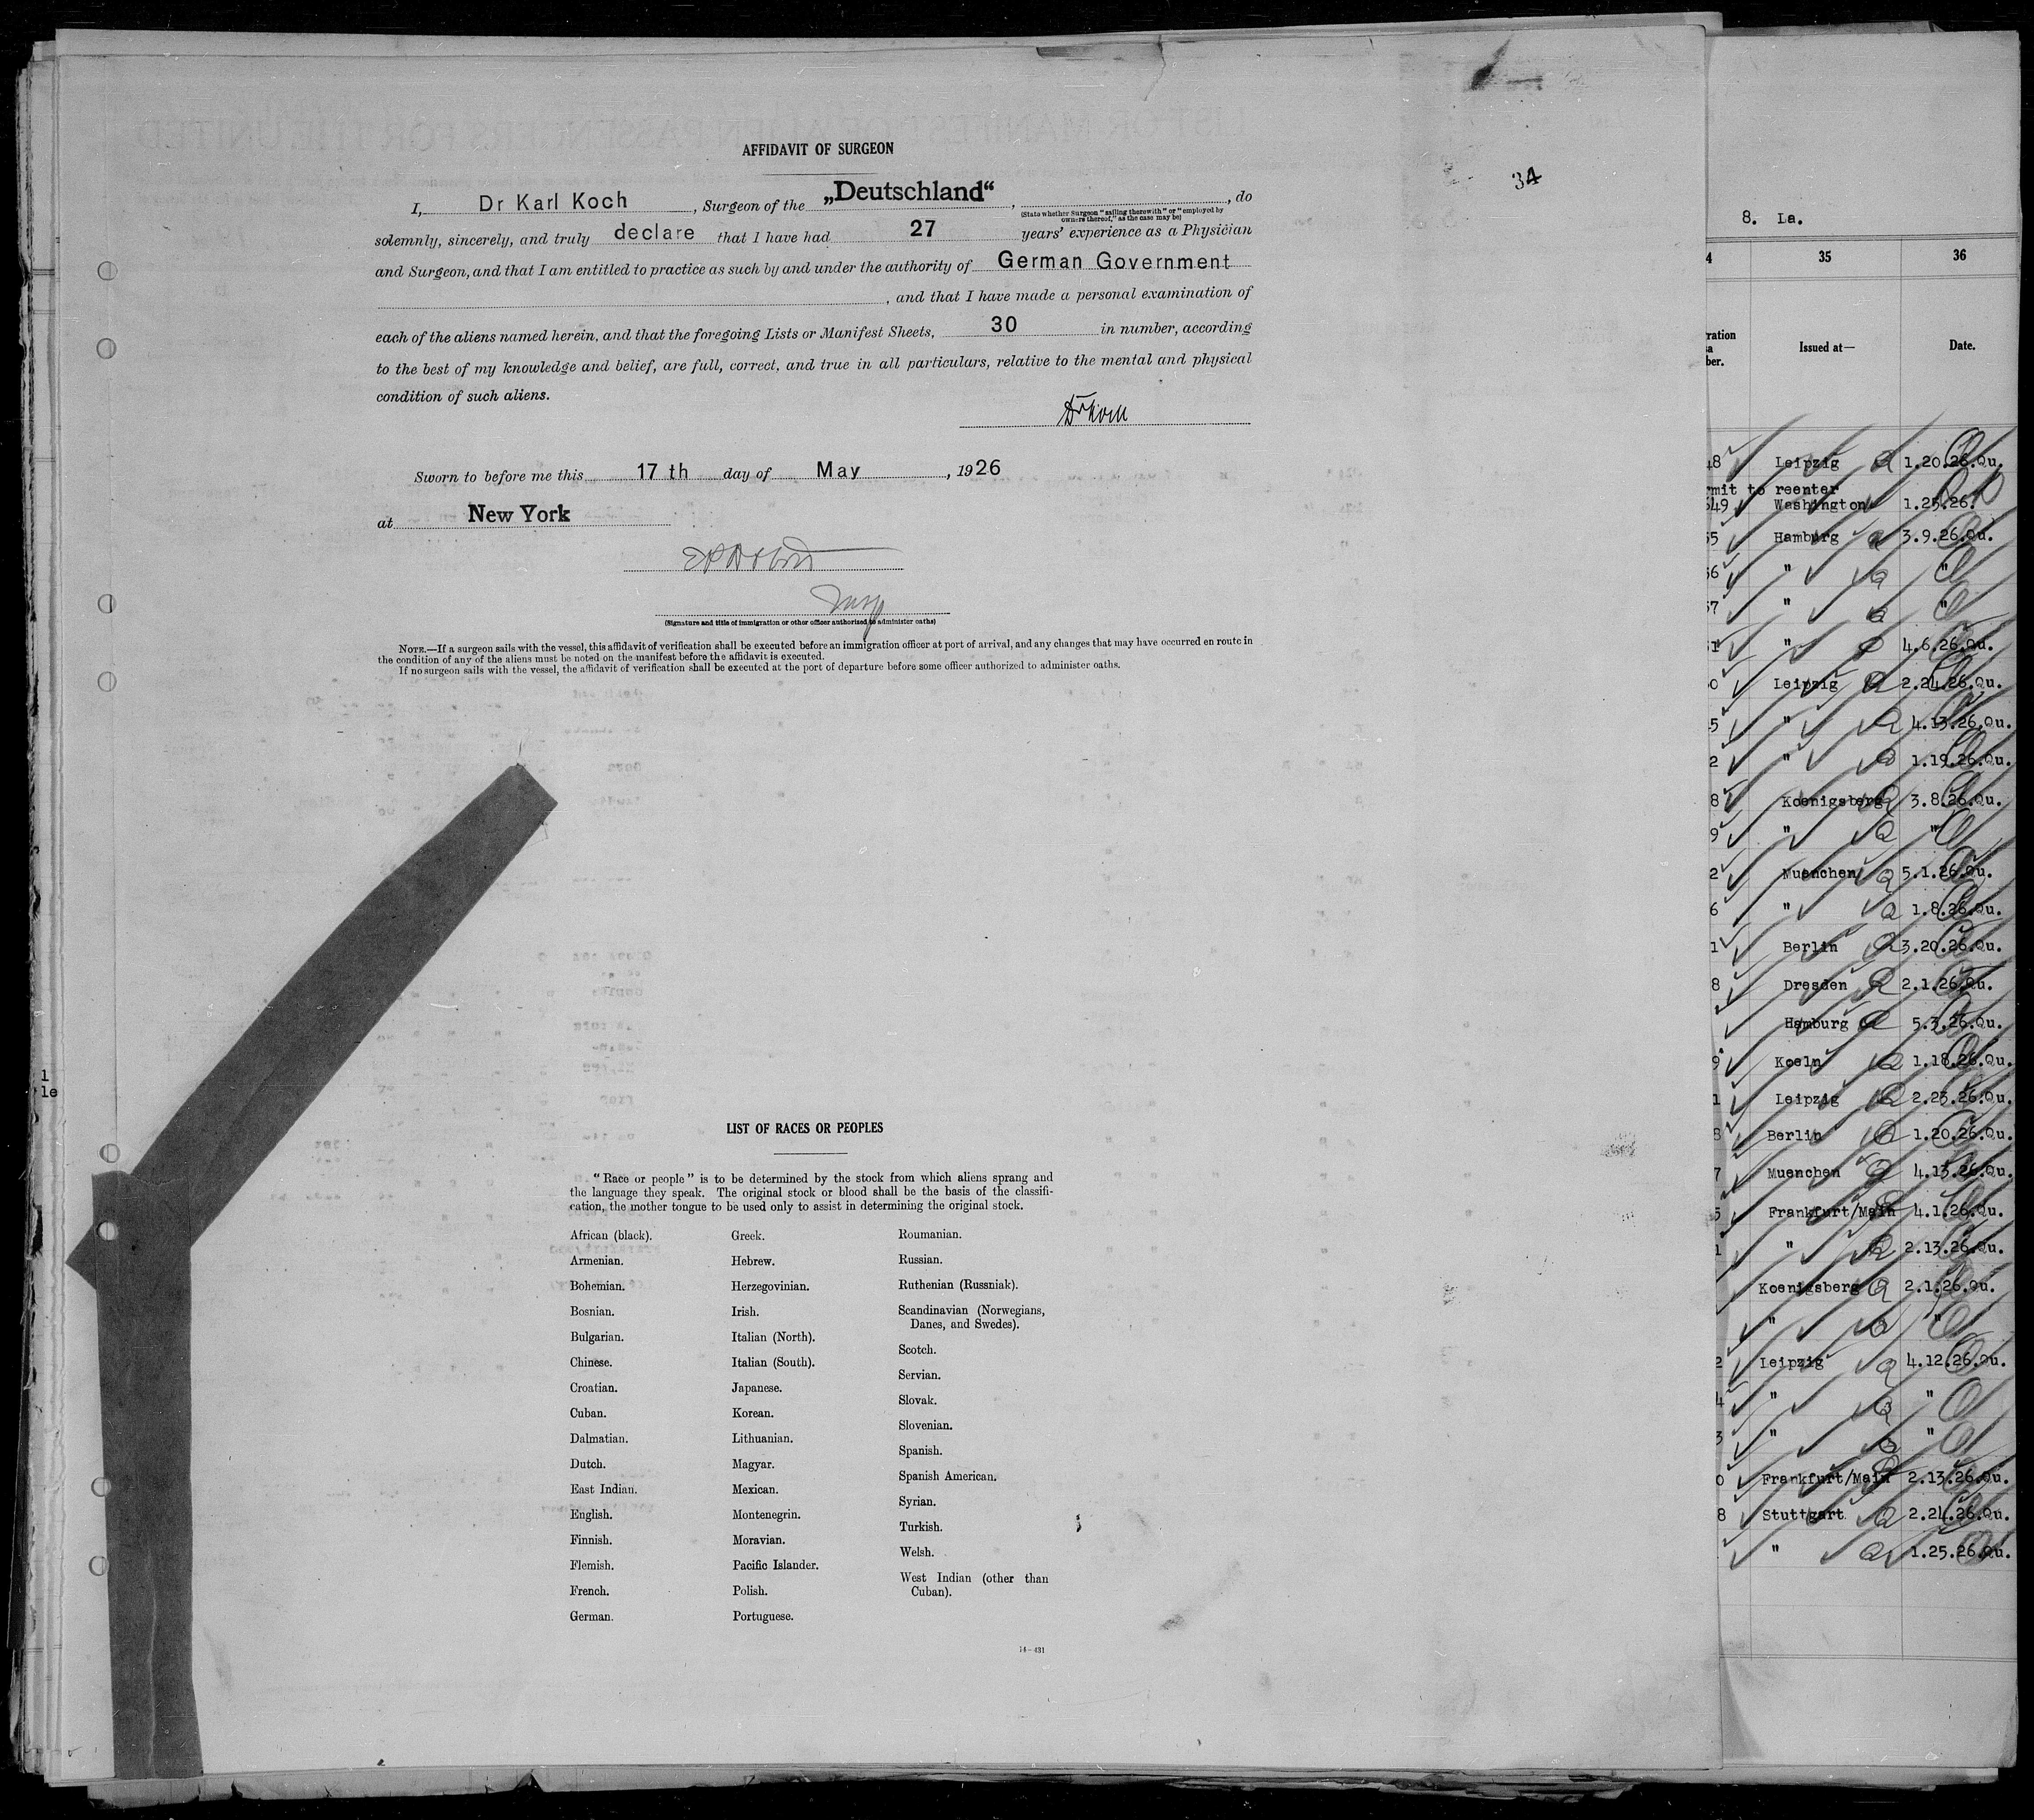 AFFIDAVIT OF SURGEON
34
I, Dr Karl Koch, Surgeon of the „Deutschland“, , do
(State whether Surgeon "sailing therewith" or "employed by
owners thereof," as the case may be)
solemnly, sincerely, and truly declare that I have had 27 years' experience as a Physician
and Surgeon, and that I am entitled to practice as such by and under the authority of German Government
, and that I have made a personal examination of
each of the aliens named herein, and that the foregoing Lists or Manifest Sheets, 30 in number, according
to the best of my knowledge and belief, are full, correct, and true in all particulars, relative to the mental and physical
condition of such aliens.
Sworn to before me this 17 th day of May, 1926
at New York
(Signature and title of immigration or other officer authorized to administer oaths)
NOTE.—If a surgeon sails with the vessel, this affidavit of verification shall be executed before an immigration officer at port of arrival, and any changes that may have occurred en route in
the condition of any of the aliens must be noted on the manifest before the affidavit is executed.
If no surgeon sails with the vessel, the affidavit of verification shall be executed at the port of departure before some officer authorized to administer oaths.
LIST OF RACES OR PEOPLES
"Race or people" is to be determined by the stock from which aliens sprang and
the language they speak. The original stock or blood shall be the basis of the classifi-
cation, the mother tongue to be used only to assist in determining the original stock.
African (black).
Armenian.
Bohemian.
Bosnian.
Bulgarian.
Chinese.
Croatian.
Cuban.
Dalmatian.
Dutch.
East Indian.
English.
Finnish.
Flemish.
French.
German.
Greek.
Hebrew.
Herzegovinian.
Irish.
Italian (North).
Italian (South).
Japanese.
Korean.
Lithuanian.
Magyar.
Mexican.
Montenegrin.
Moravian.
Pacific Islander.
Polish.
Portuguese.
Roumanian.
Russian.
Ruthenian (Russniak).
Scandinavian (Norwegians,
Danes, and Swedes).
Scotch.
Servian.
Slovak.
Slovenian.
Spanish.
Spanish American.
Syrian.
Turkish.
Welsh.
West Indian (other than
Cuban).
14—431
8. La.
4 35 36
ration
a
ber.
Issued at—
Date.
48 Leipzig 1.20.26.Qu.
mit to reenter
549 Washington 1.25.26.
55 Hamburg 3.9.26.Qu.
56 " "
57 " "
51 " 4.6.26.Qu.
0 Leipzig 2.24.26.Qu.
5 " 4.13.26.Qu.
2 " 1.19.26.Qu.
8 Koenigsberg 3.8.26.Qu.
9 " "
2 Muenchen 5.1.26.Qu.
6 " 1.8.26.Qu.
1 Berlin 3.20.26.Qu.
8 Dresden 2.1.26.Qu.
Hamburg 5.3.26.Qu.
9 Koeln 1.18.26.Qu.
1 Leipzig 2.23.26.Qu.
8 Berlin 1.20.26.Qu.
7 Muenchen 4.13.26.Qu.
5 Frankfurt/Main 4.1.26.Qu.
1 " 2.13.26.Qu.
Koenigsberg 2.1.26.Qu.
" "
2 Leipzig 4.12.26.Qu.
4 " "
3 " "
0 Frankfurt/Main 2.13.26.Qu.
8 Stuttgart 2.24.26.Qu.
" 1.25.26.Qu.
1
le